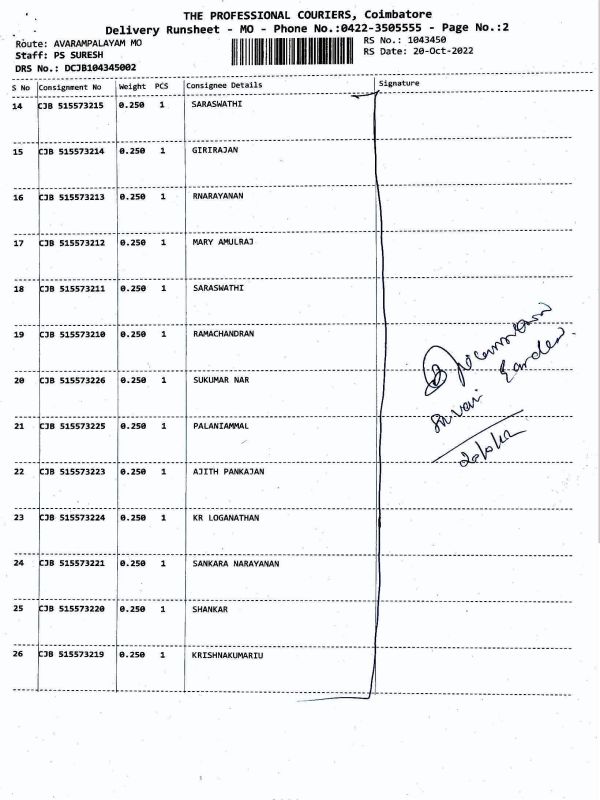 THE PROFESSIONAL COURIERS, Coimbatore
Delivery Runsheet - MO - Phone No.:0422-3505555 - Page No.:2
Route: AVARAMPALAYAM MO
RS No.: 1043450
Staff: PS SURESH
RS Date: 20-Oct-2022
DRS No.: DCJB104345002
S No Consignment No Weight PCS Consignee Details Signature
14 CJB 515573215 0.250 1 SARASWATHI
15 CJB 515573214 0.250 1 GIRIRAJAN
16 CJB 515573213 0.250 1 RNARAYANAN
17 CJB 515573212 0.250 1 MARY AMULRAJ
18 CJB 515573211 0.250 1 SARASWATHI
19 CJB 515573210 0.250 1 RAMACHANDRAN
20 CJB 515573226 0.250 1 SUKUMAR NAR
21 CJB 515573225 0.250 1 PALANIAMMAL
22 CJB 515573223 0.250 1 AJITH PANKAJAN
23 CJB 515573224 0.250 1 KR LOGANATHAN
24 CJB 515573221 0.250 1 SANKARA NARAYANAN
25 CJB 515573220 0.250 1 SHANKAR
26 CJB 515573219 0.250 1 KRISHNAKUMARIU
Garden